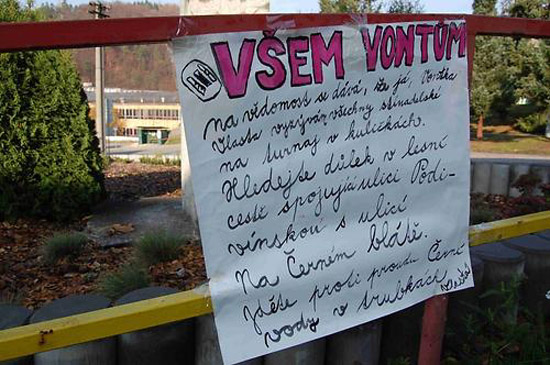 VŠEM VONTŮM
na vědomost se dává, že já, Vontka
Vlasta vyzývám všechny stínadelské
na turnaj v kuličkách.
Hledejte důlek v lesní
cestě spojující ulici Podi-
vínskou s ulicí
Na Černém blátě.
Jděte proti proudu Černé
vody v trubkách